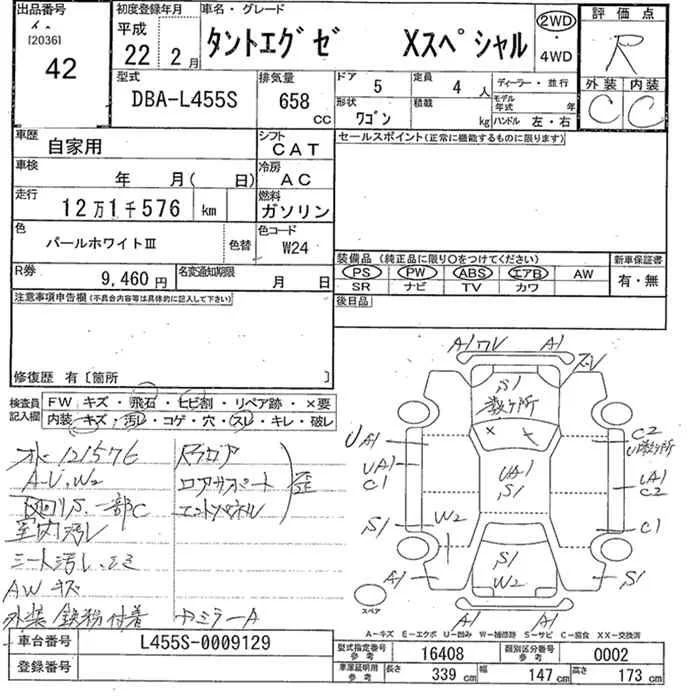 出品番号 初度登録年月 車名・グレード 評価点
[2036] 平成 タントエグゼ Xスペシャル 2WD・4WD R
42 22年 2月
型式 DBA-L455S 排気量 658 cc ドア 5 定員 4人 ディーラー・並行 外装 内装
形状 ワゴン 積載 kg モデル年式 年 ハンドル 左・右 C C
車歴 自家用 シフト CAT セールスポイント(正常に機能するものに限ります)
車検 年 月( 日) 冷房 AC
走行 12万1千576 km 燃料 ガソリン
色 パールホワイトIII 色替 色コード W24
装備品 (純正品に限り○をつけてください) 新車保証書
PS PW ABS エアB AW 有・無
SR ナビ TV カワ
R券 9,460円 名変通知期限 月 日
後日品
注意事項申告欄(不具合内容等は具体的に記入して下さい)
修復歴 有〔箇所 〕
検査員記入欄 FW キズ・飛石・ヒビ割・リペア跡・×要
内装・キズ・汚レ・コゲ・穴・スレ・キレ・破レ
水 121576
A-U、W2
室内汚レ
シート汚レ
AW キズ
外装 鉄粉付着
ロアサポート
エンドパネル
歪
中ミラーA
A1 ワレ A1
S1
数ヶ所
UA1 C2
U数ヶ所
UA1 C1 UA1 S1 UA1 C2
S1 W2 C1
A1 S1 W2 S1
A1 A1
スペア
A-キズ E-エクボ U-凹み W-補修跡 S-サビ C-腐食 XX-交換済
車台番号 L455S-0009129
登録番号
型式指定番号 参考 16408 類別区分番号 参考 0002
車庫証明用 参考 長さ 339 cm 幅 147 cm 高さ 173 cm